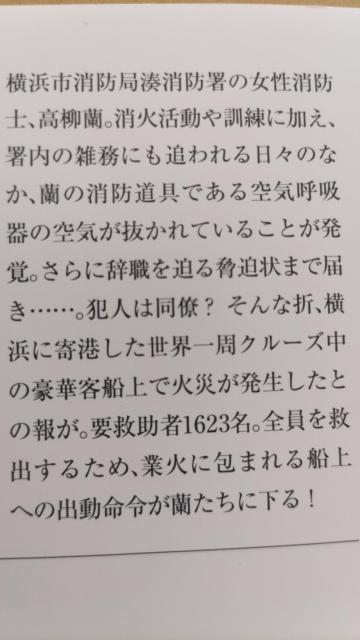 横浜市消防局湊消防署の女性消防
士、高柳蘭。消火活動や訓練に加え、
署内の雑務にも追われる日々のな
か、蘭の消防道具である空気呼吸
器の空気が抜かれていることが発
覚。さらに辞職を迫る脅迫状まで届
き……。犯人は同僚？ そんな折、横
浜に寄港した世界一周クルーズ中
の豪華客船上で火災が発生したと
の報が。要救助者1623名。全員を救
出するため、業火に包まれる船上
への出動命令が蘭たちに下る！